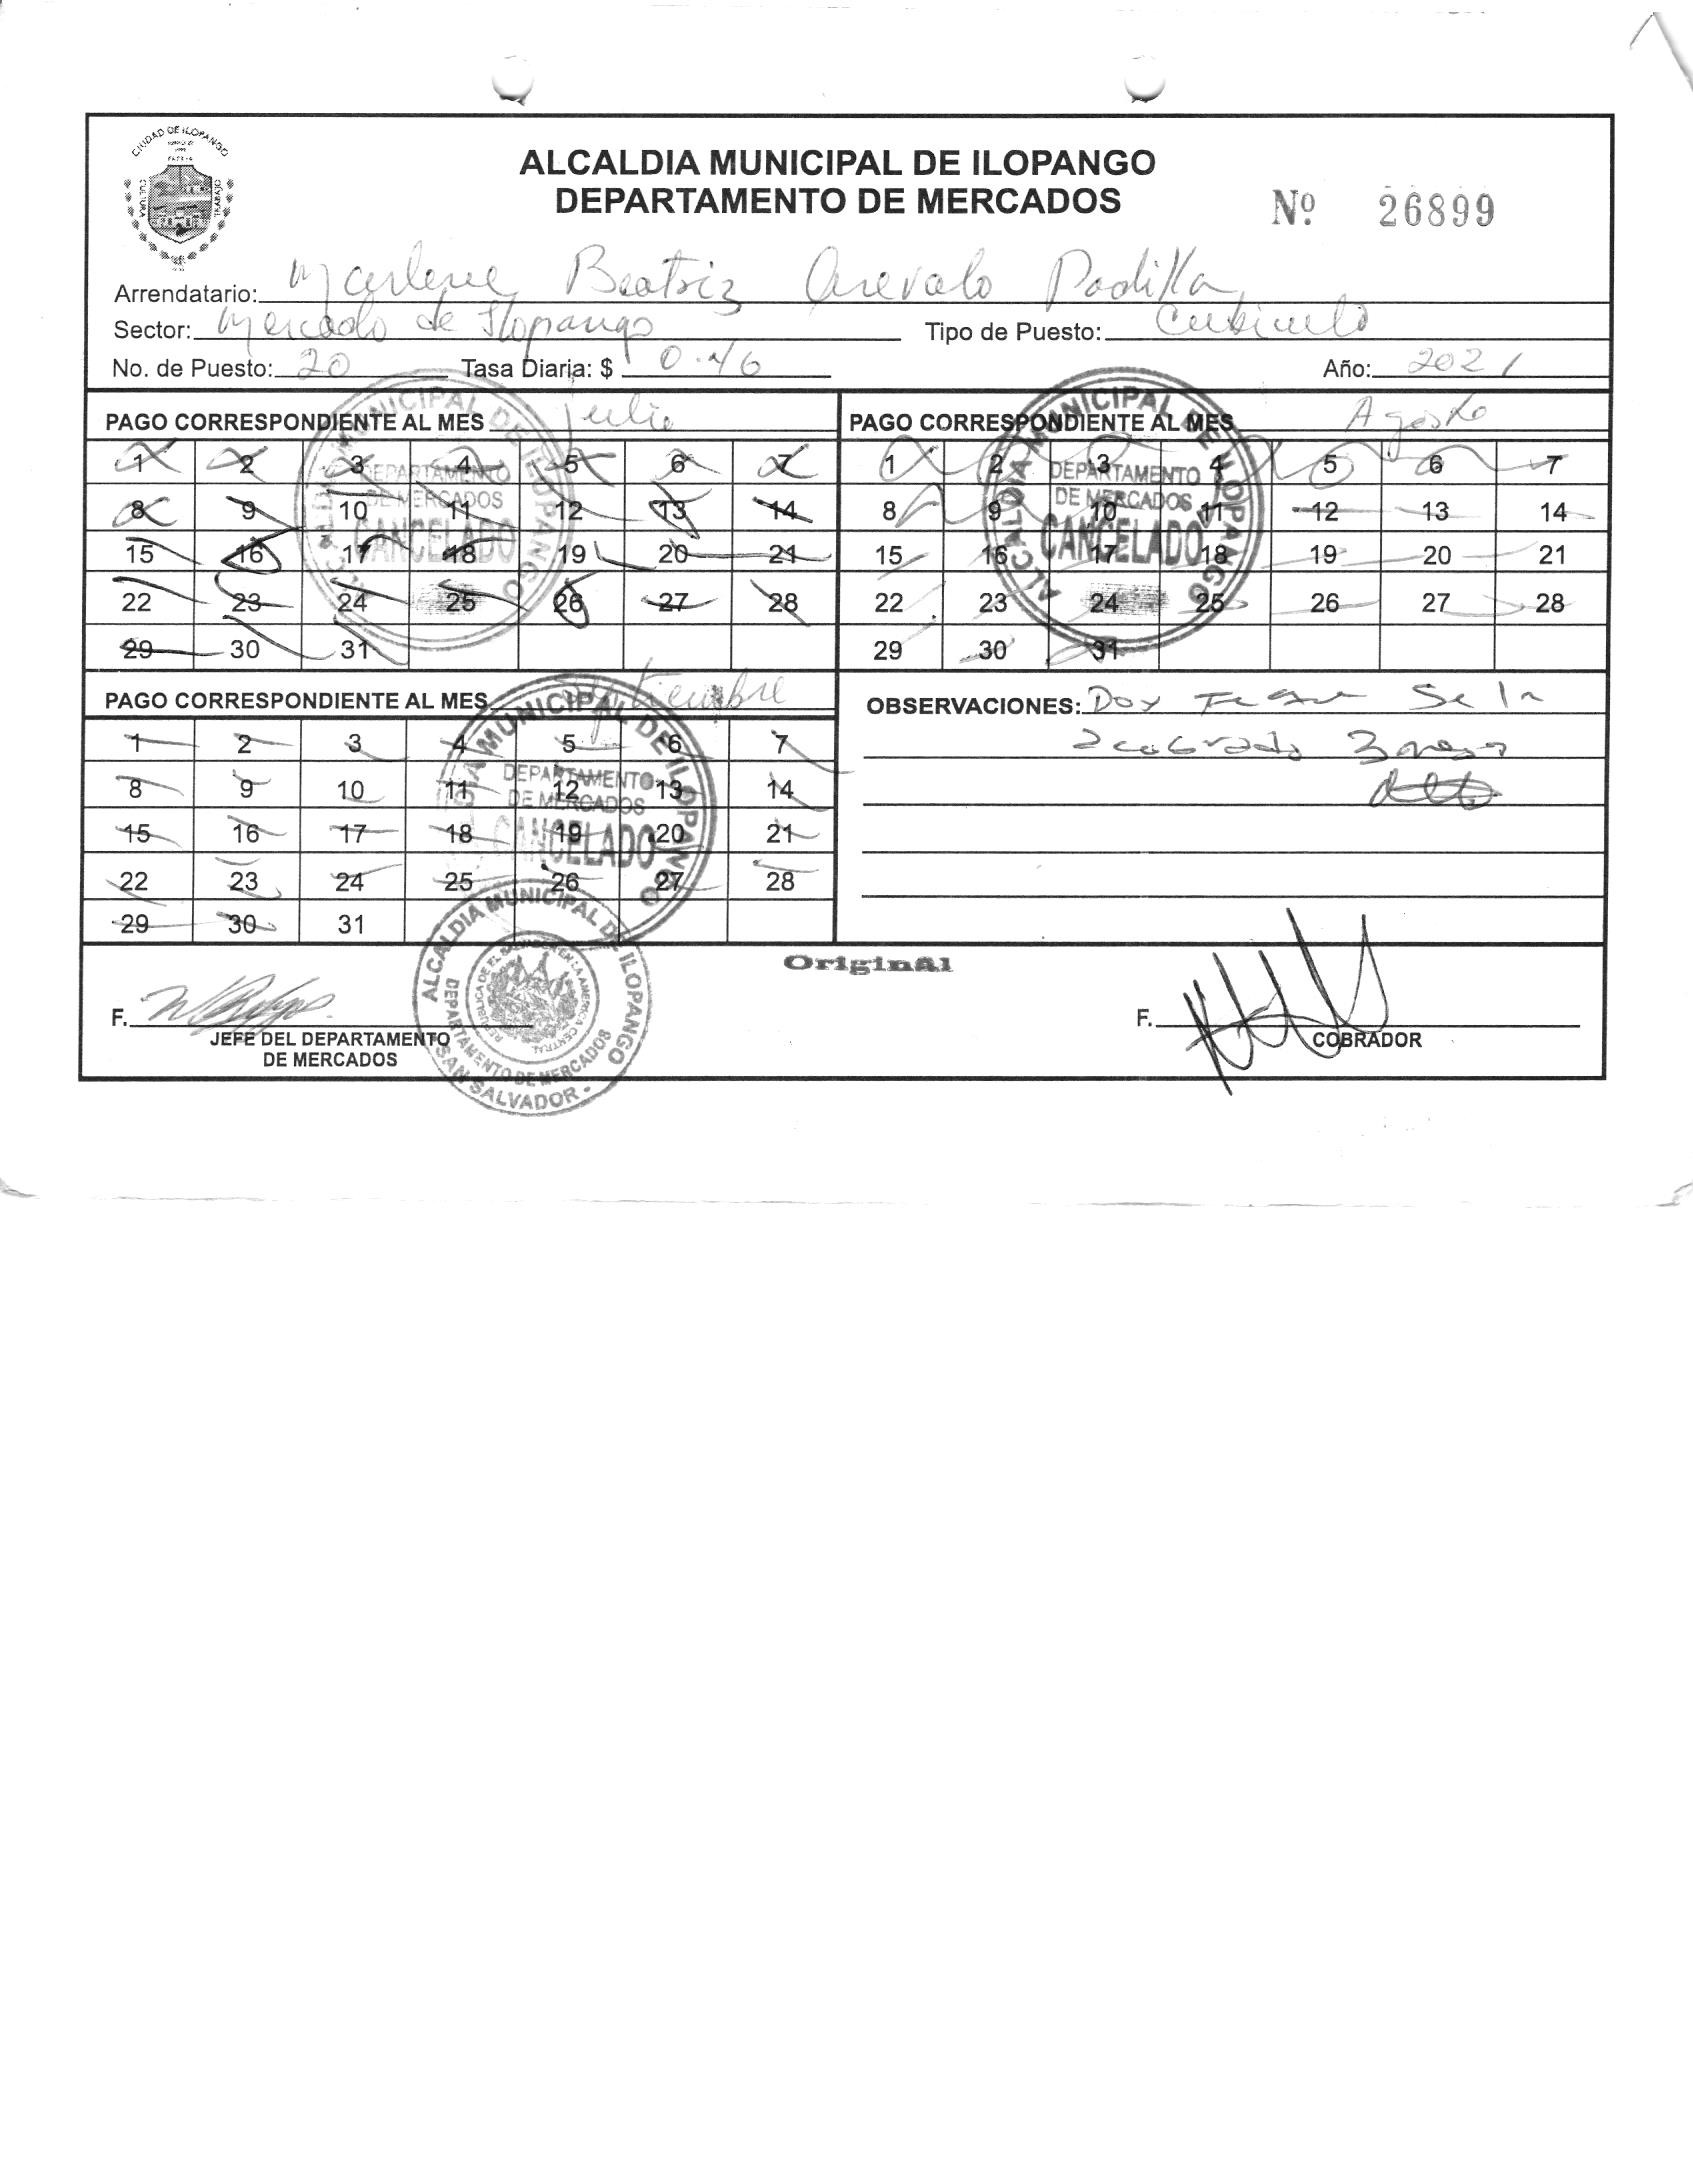 CIUDAD DE ILOPANGO
CULTURA
TRABAJO
ALCALDIA MUNICIPAL DE ILOPANGO
DEPARTAMENTO DE MERCADOS
Nº 26899
Arrendatario: Marlene Beatriz Arevalo Padilla
Sector: Mercado de Ilopango Tipo de Puesto: Cubiculo
No. de Puesto: 20 Tasa Diaria: $ 0.46 Año: 2021
PAGO CORRESPONDIENTE AL MES Julio
1 2 3 4 5 6 7
8 9 10 11 12 13 14
15 16 17 18 19 20 21
22 23 24 25 26 27 28
29 30 31
ALCALDIA MUNICIPAL DE ILOPANGO
DEPARTAMENTO
DE MERCADOS
CANCELADO
PAGO CORRESPONDIENTE AL MES Agosto
1 2 3 4 5 6 7
8 9 10 11 12 13 14
15 16 17 18 19 20 21
22 23 24 25 26 27 28
29 30 31
ALCALDIA MUNICIPAL DE ILOPANGO
DEPARTAMENTO
DE MERCADOS
CANCELADO
PAGO CORRESPONDIENTE AL MES Septiembre
1 2 3 4 5 6 7
8 9 10 11 12 13 14
15 16 17 18 19 20 21
22 23 24 25 26 27 28
29 30 31
ALCALDIA MUNICIPAL DE ILOPANGO
DEPARTAMENTO
DE MERCADOS
CANCELADO
OBSERVACIONES: Doy Se
3
Original
F.
JEFE DEL DEPARTAMENTO
DE MERCADOS
ALCALDIA MUNICIPAL DE ILOPANGO
DEPARTAMENTO DE MERCADOS
REPUBLICA DE EL SALVADOR EN LA AMERICA CENTRAL
SAN SALVADOR -
F.
COBRADOR